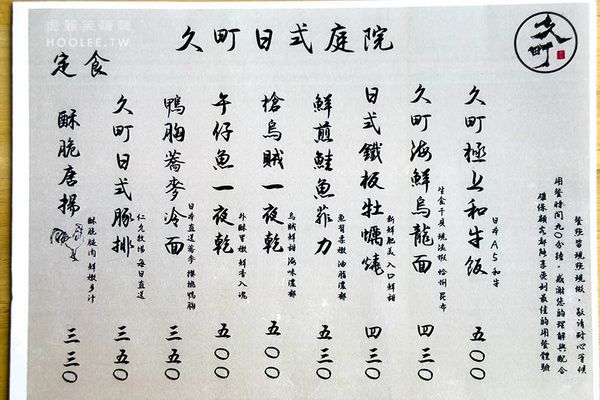 虎麗笑嗨嗨
HOOLEE.TW
久町日式庭院
久町
定食
餐點皆現點現做，敬請耐心等候
用餐時間90分鐘，感謝您的理解與配合
確保顧客都能享受到最佳的用餐體驗
久町極上和牛飯
日本A5和牛
五〇〇
久町海鮮烏龍面
生食干貝 現流蝦 蛤蜊 昆布
四三〇
日式鐵板牡蠣燒
新鮮肥美 入口鮮甜
四三〇
鮮煎鮭魚菲力
魚質柔嫩 油脂濃郁
五〇〇
槍烏賊一夜乾
烏賊鮮甜 海味濃郁
五〇〇
午仔魚一夜乾
外酥里嫩 鮮香入魂
五〇〇
鴨胸蕎麥冷面
日本直送蕎麥 櫻桃鴨胸
三五〇
久町日式豚排
仁先牧場 每日直送
三五〇
酥脆唐揚
酥脆腿肉 鮮嫩多汁
三三〇